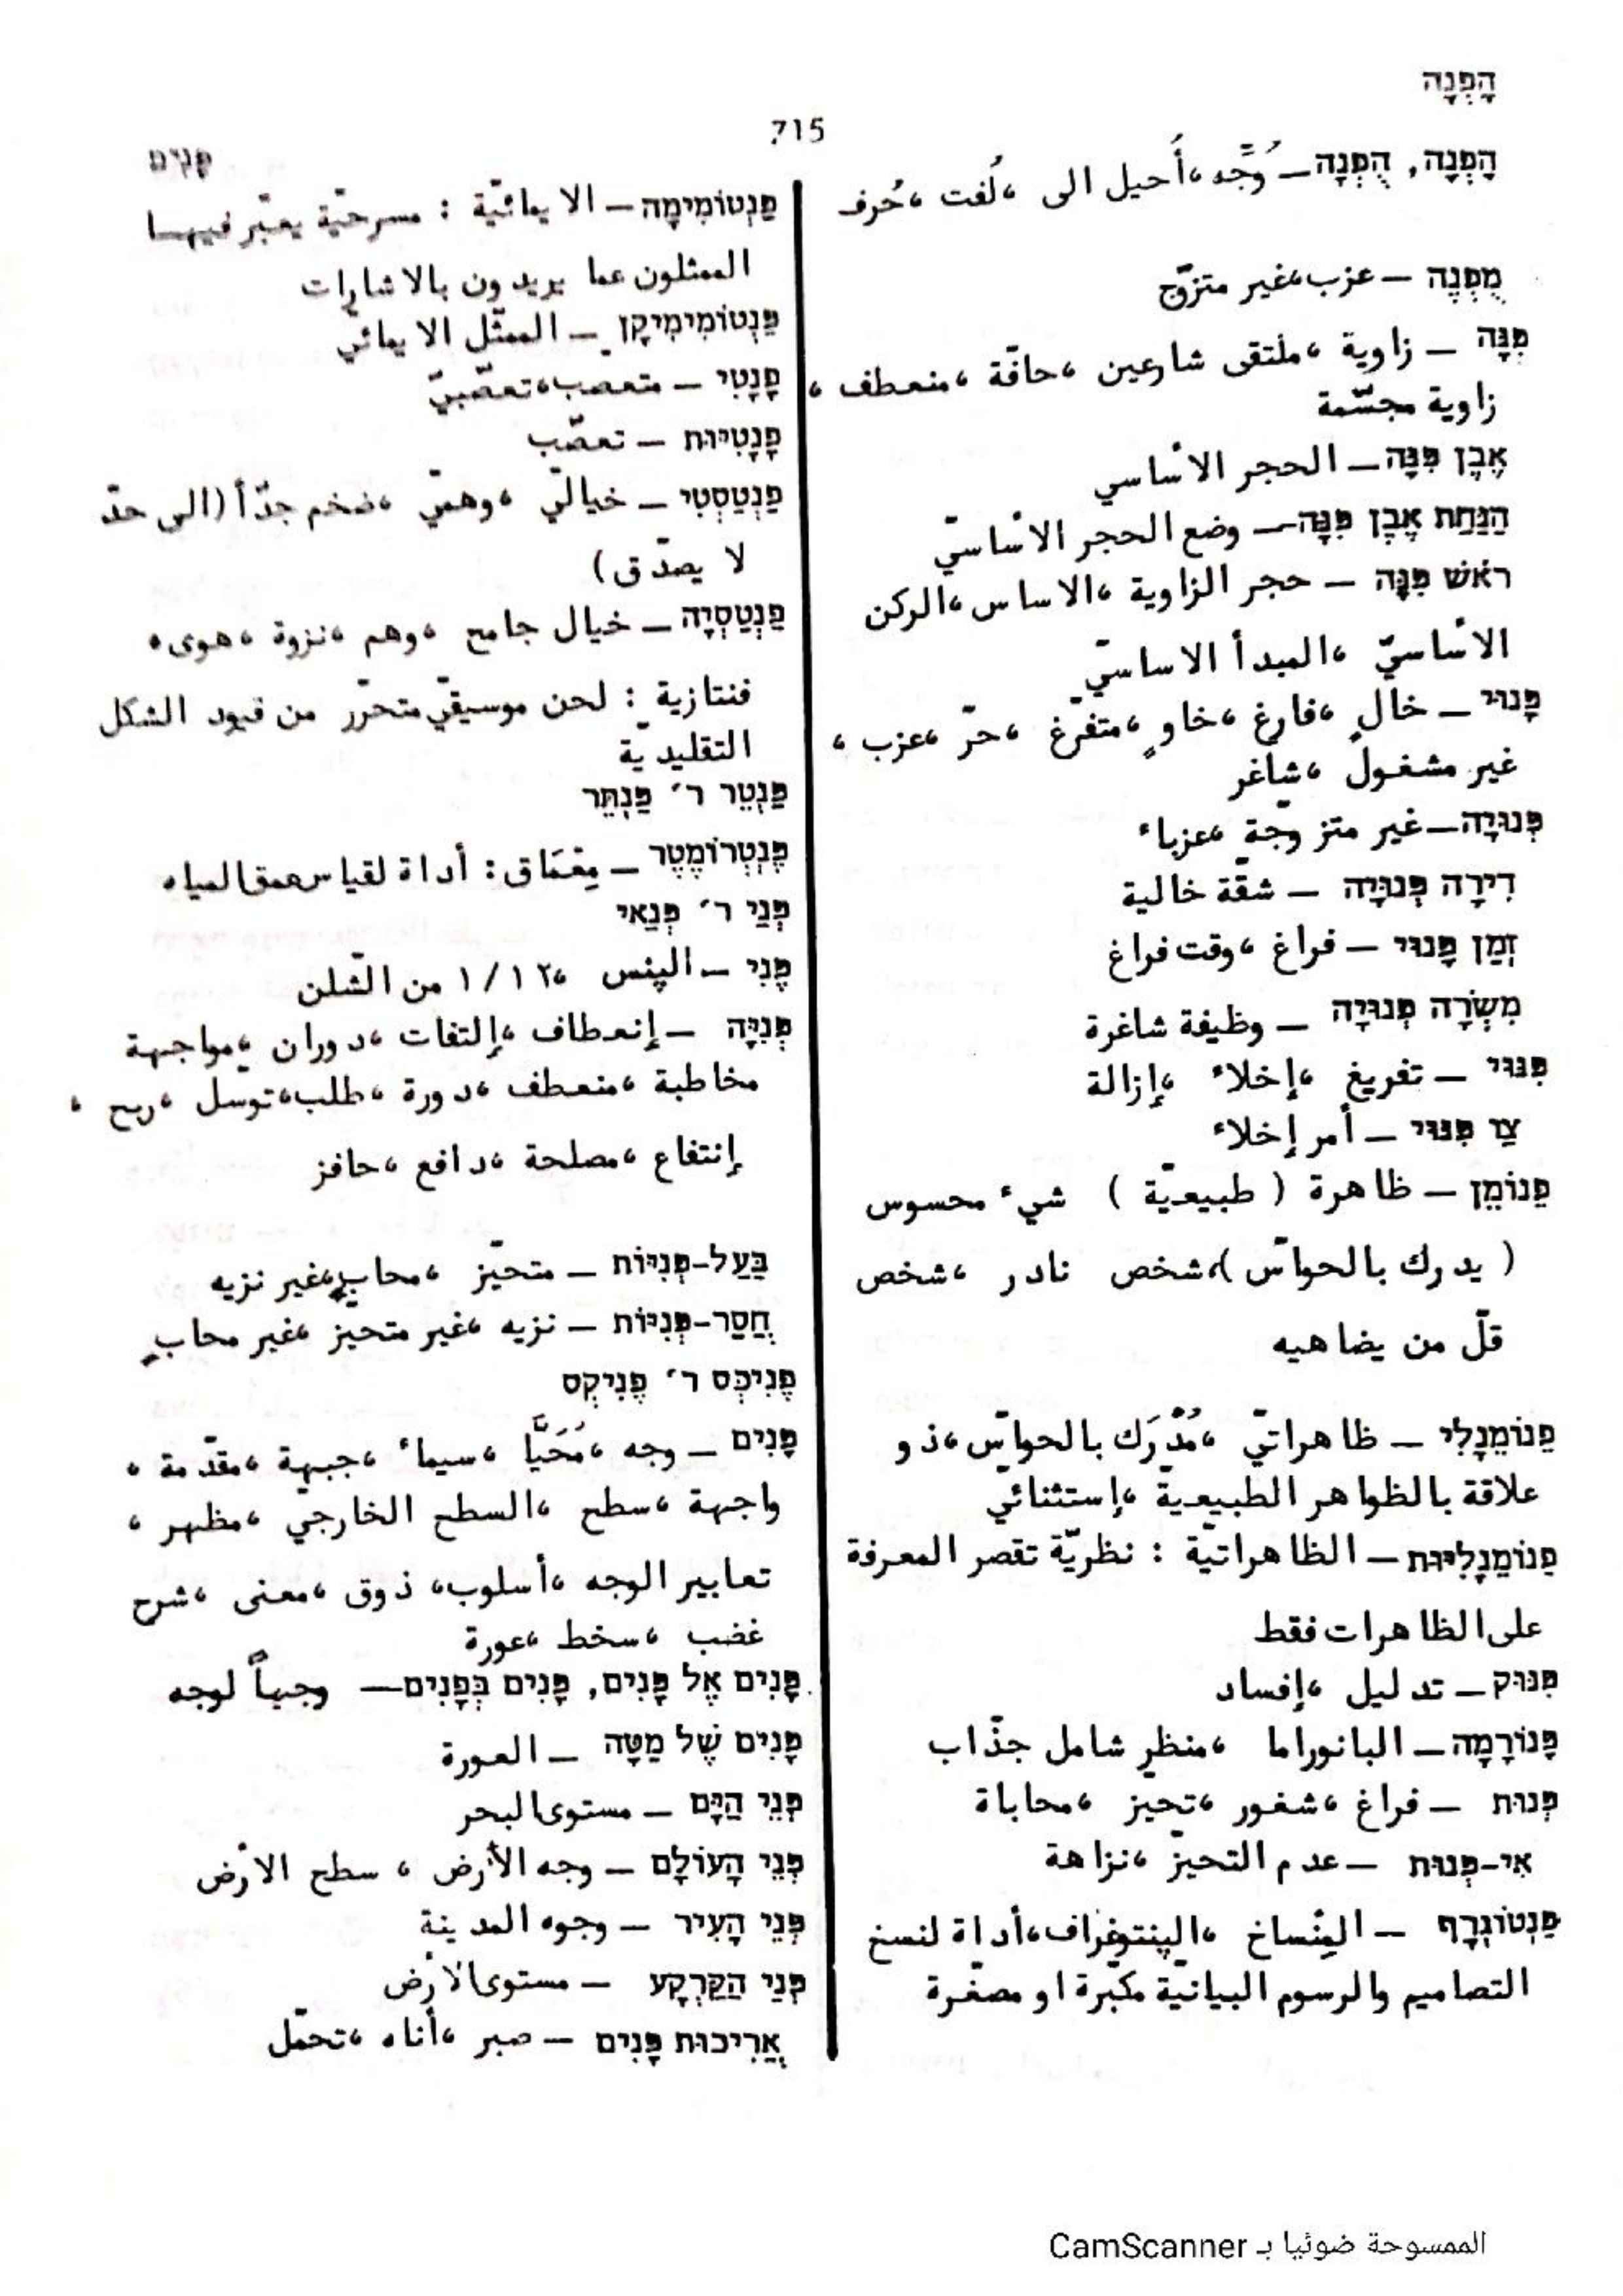 הָפְנָה
715
פָּנִים
הָפְנָה, הֻפְנָה – وُجِّه، أُحيل الى ،لُفت ،حُرف
מֻפְנֶה – عزب،غير متزوّج
פִּנָּה – زاوية ،ملتقى شارعين ،حافّة ،منعطف ،
زاوية مجسّمة
אֶבֶן פִּנָּה – الحجر الأساسي
הַנָּחַת אֶבֶן פִּנָּה – وضع الحجر الأساسيّ
רֹאשׁ פִּנָּה – حجر الزاوية ،الاساس ،الركن
الأساسيّ ،المبدأ الاساسيّ
פָּנוּי – خالٍ ،فارغ ،خاوٍ ،متفرّغ ،حرّ ،عزب ،
غير مشغول ،شاغر
פְּנוּיָה – غير متزوّجة ،عزباء
דִּירָה פְּנוּיָה – شقّة خالية
זְמַן פָּנוּי – فراغ ،وقت فراغ
מִשְׂרָה פְּנוּיָה – وظيفة شاغرة
פִּנּוּי – تفريغ ،إخلاء ،إزالة
צַו פִּנּוּי – أمر إخلاء
פֵנוֹמֵן – ظاهرة ( طبيعيّة ) شيء محسوس
( يدرك بالحواسّ)،شخص نادر ،شخص
قلّ من يضاهيه
פֵנוֹמֵנָלִי – ظاهراتيّ ،مُدْرَك بالحواسّ ،ذو
علاقة بالظواهر الطبيعية ،إستثنائيّ
פֵנוֹמֵנָלִיּוּת – الظاهراتيّة : نظريّة تقصر المعرفة
على الظاهرات فقط
פִּנּוּק – تدليل ،إفساد
פָּנוֹרָמָה – البانوراما ،منظر شامل جذّاب
פְּנוּת – فراغ ،شغور ،تحيّز ،محاباة
אִי-פְּנוּת – عدم التحيّز ،نزاهة
פַּנְטוֹגְרָף – المِنْساخ ،الپنتوغراف،أداة لنسخ
التصاميم والرسوم البيانيّة مكبّرة او مصغّرة
פַּנְטוֹמִימָה – الايمائيّة : مسرحيّة يعبّر فيها
الممثلون عما يريدون بالاشارات
פַּנְטוֹמִימִיקָן – الممثّل الايمائيّ
פָנָטִי – متعصب،تعصّبيّ
פָנָטִיּוּת – تعصّب
פַנְטַסְטִי – خياليّ ،وهميّ ،ضخم جدّاً (الى حدّ
لا يصدّق)
פַנְטַסְיָה – خيال جامح ،وهم ،نزوة ،هوى،
فنتازية : لحن موسيقيّ متحرّر من قيود الشكل
التقليديّة
פַּנְטֵר ר׳ פַּנְתֵּר
פֶּנֶטְרוֹמֶטֶר – مِعْمَاق: أداة لقياس عمق المياه
פְּנַי ר׳ פְּנַאי
פֶּנִי – الپنس ،١/١٢ من الشّلن
פְּנִיָּה – إنعطاف ،إلتفات ،دوران ،مواجهة
مخاطبة ،منعطف ،دورة ،طلب،توسّل ،ربح ،
إنتفاع ،مصلحة ،دافع ،حافز
בַּעַל-פְּנִיּוֹת – متحيّز ،محابٍ،غير نزيه
חֲסַר-פְּנִיּוֹת – نزيه ،غير متحيز ،غير محابٍ
פֶנִיכְּס ר׳ פֶנִיקְס
פָּנִים – وجه ،مُحَيَّا ،سيماء ،جبهة ،مقدّمة ،
واجهة ،سطح ،السطح الخارجيّ ،مظهر ،
تعابير الوجه ،أسلوب، ذوق ،معنى ،شرح
غضب ،سخط ،عورة
פָּנִים אֶל פָּנִים, פָּנִים בְּפָנִים – وجهاً لوجه
פָּנִים שֶׁל מַטָּה – العورة
פְּנֵי הַיָּם – مستوى البحر
פְּנֵי הָעוֹלָם – وجه الأرض ، سطح الأرض
פְּנֵי הָעִיר – وجوه المدينة
פְּנֵי הַקַּרְקַע – مستوى الأرض
אֲרִיכוּת פָּנִים – صبر ،أناه ،تحمّل
الممسوحة ضوئيا بـ CamScanner